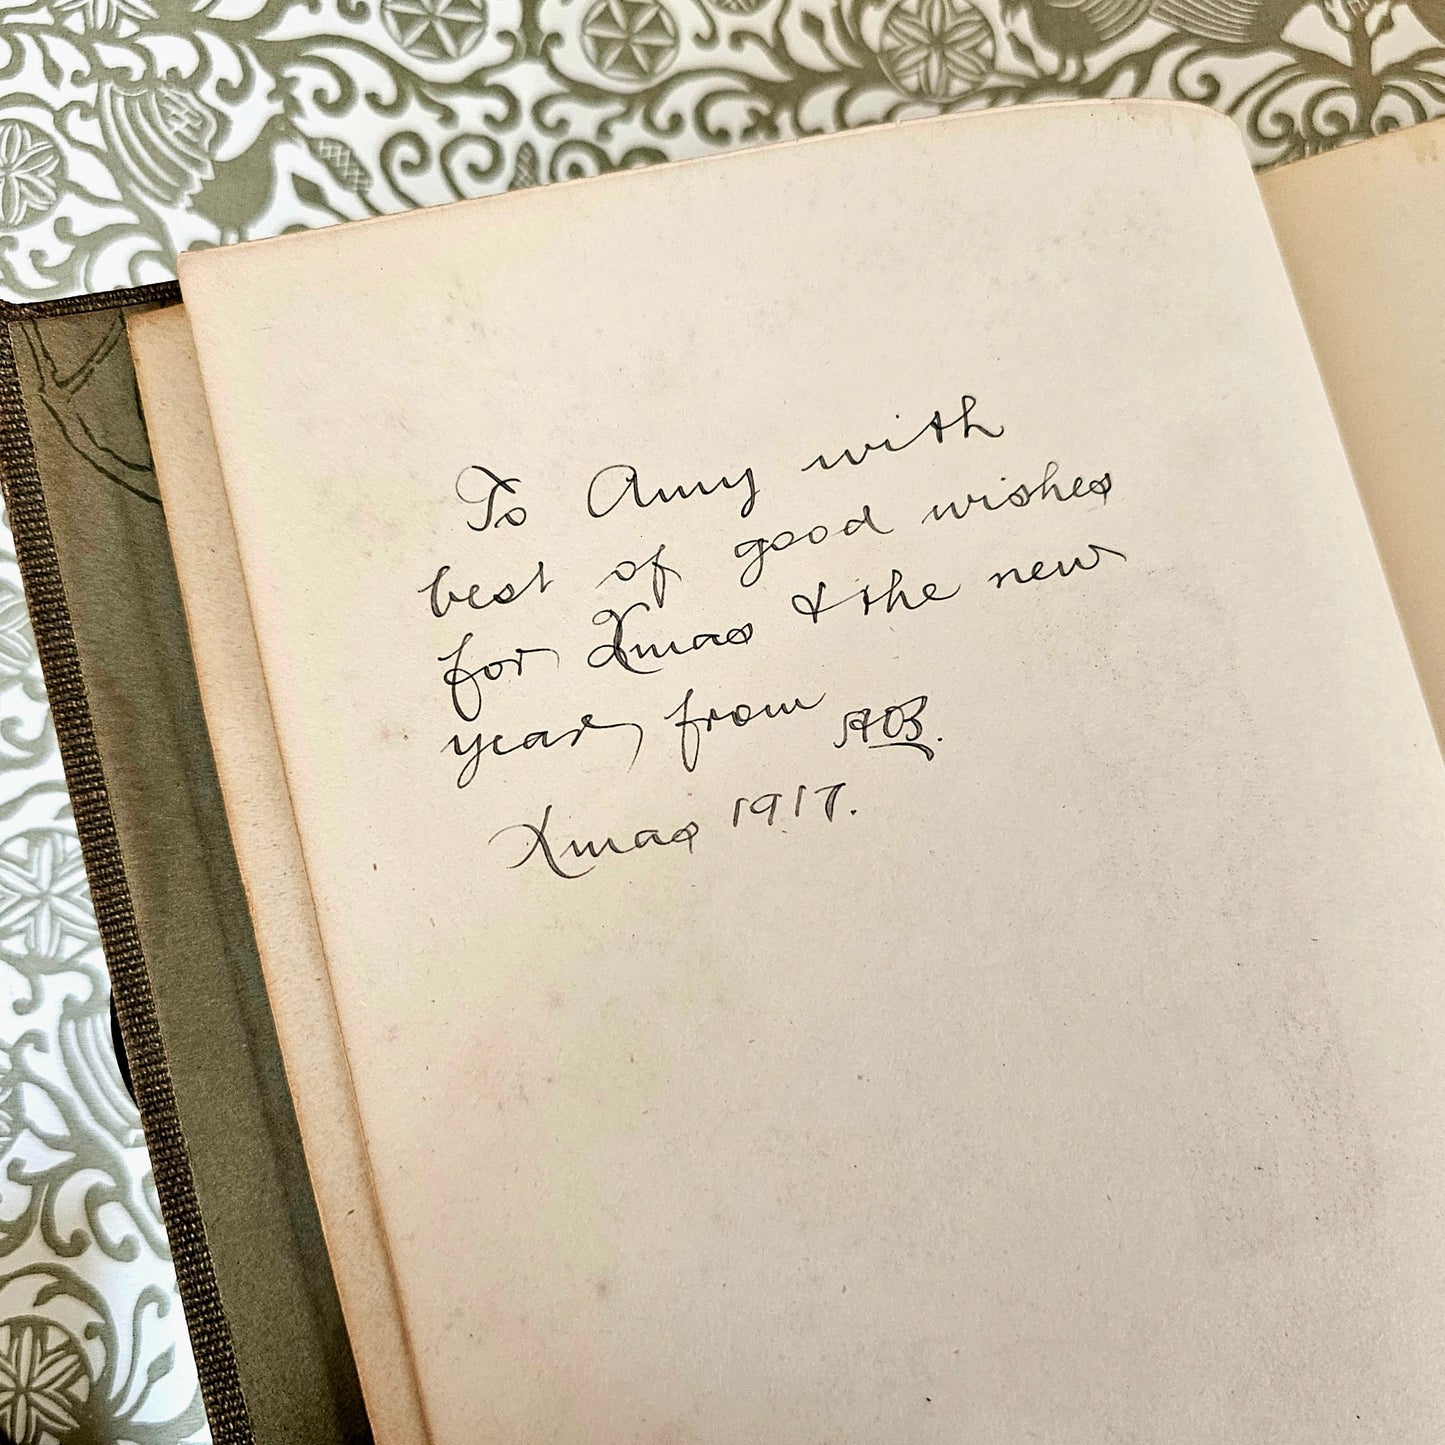 To Amy with
best of good wishes
for Xmas & the new
year, from AOB.
Xmas 1917.